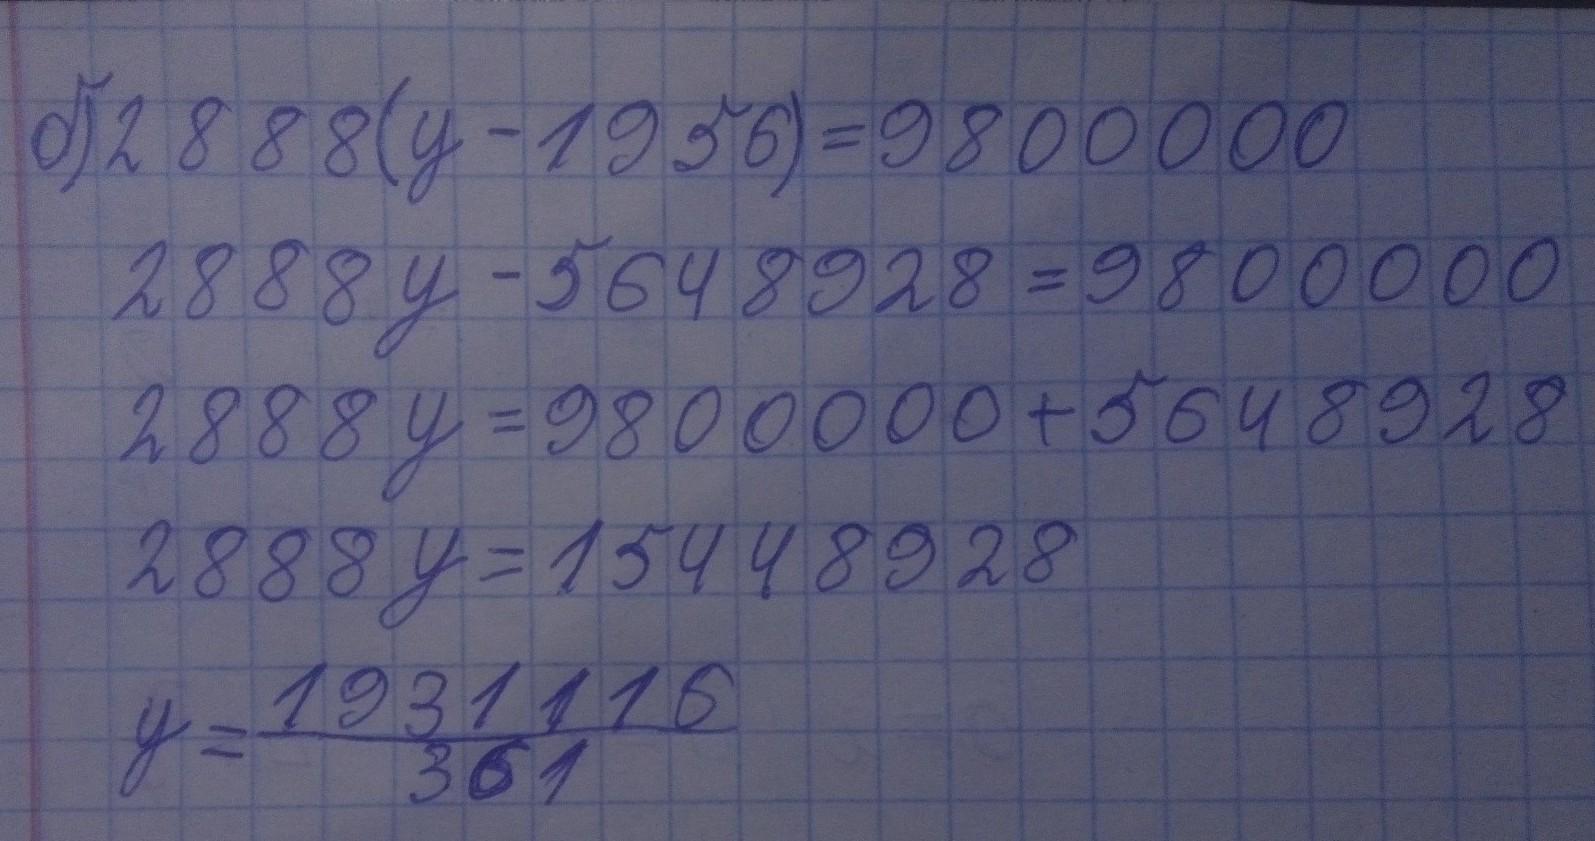 б) 2888(y-1956)=9800000
2888y-5648928=9800000
2888y=9800000+5648928
2888y=15448928
y=1931116/361